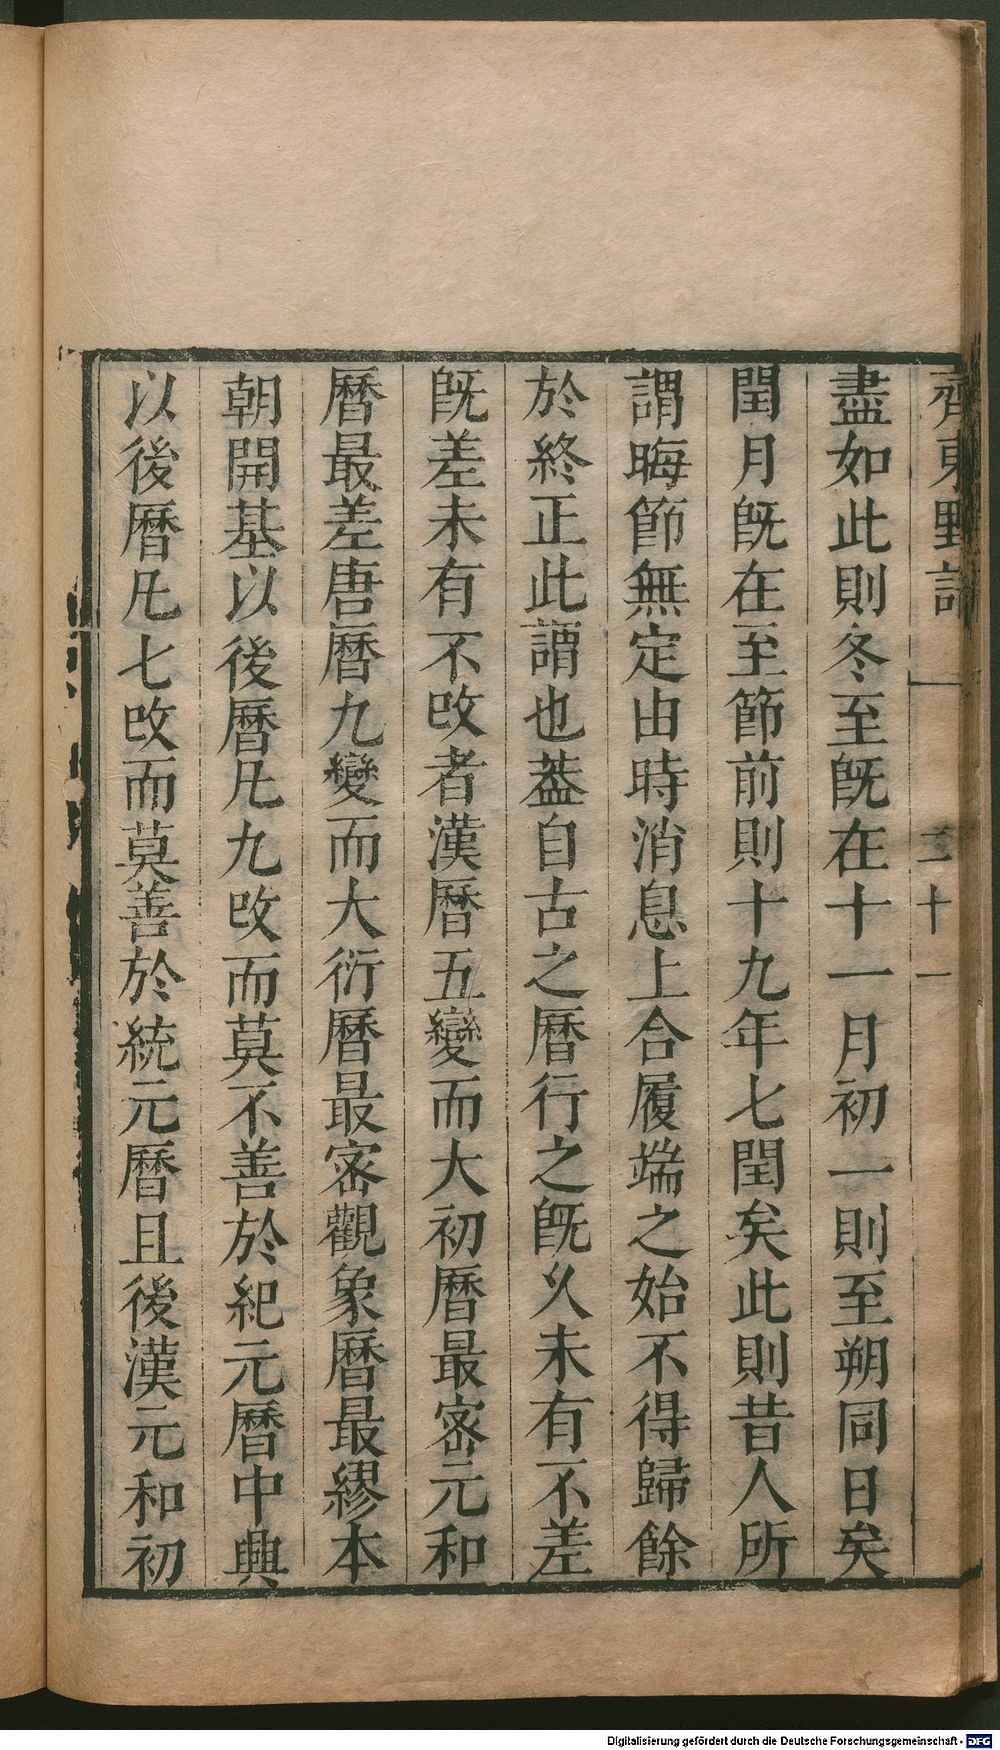 齊東野語 一 二十一
盡如此則冬至旣在十一月初一則至朔同日矣
閏月旣在至節前則十九年七閏矣此則昔人所
謂晦節無定由時消息上合履端之始不得歸餘
於終正此謂也葢自古之曆行之旣乆未有不差
旣差未有不攺者漢曆五變而大初曆最密元和
曆最差唐曆九變而大衍曆最密觀象曆最繆本
朝開基以後曆凡九攺而莫不善於紀元曆中興
以後曆凡七攺而莫善於統元曆且後漢元和初
Digitalisierung gefördert durch die Deutsche Forschungsgemeinschaft - DFG